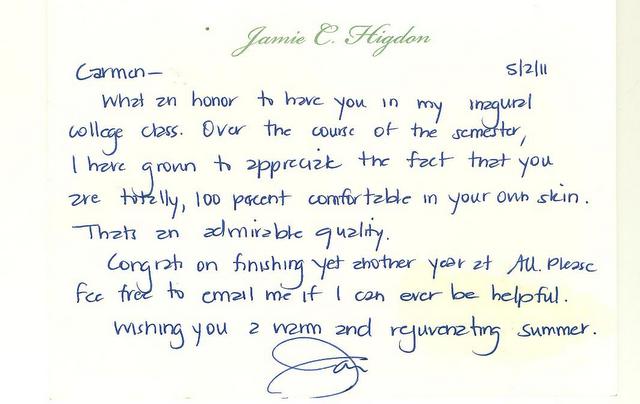 Jamie C. Higdon
Carmen— 5/2/11
What an honor to have you in my inagural
college class. Over the course of the semester,
I have grown to appreciate the fact that you
are totally, 100 percent comfortable in your own skin.
Thats an admirable quality.
Congrats on finishing yet another year at AU. Please
fee free to email me if I can ever be helpful.
Wishing you a warm and rejuvenating summer.